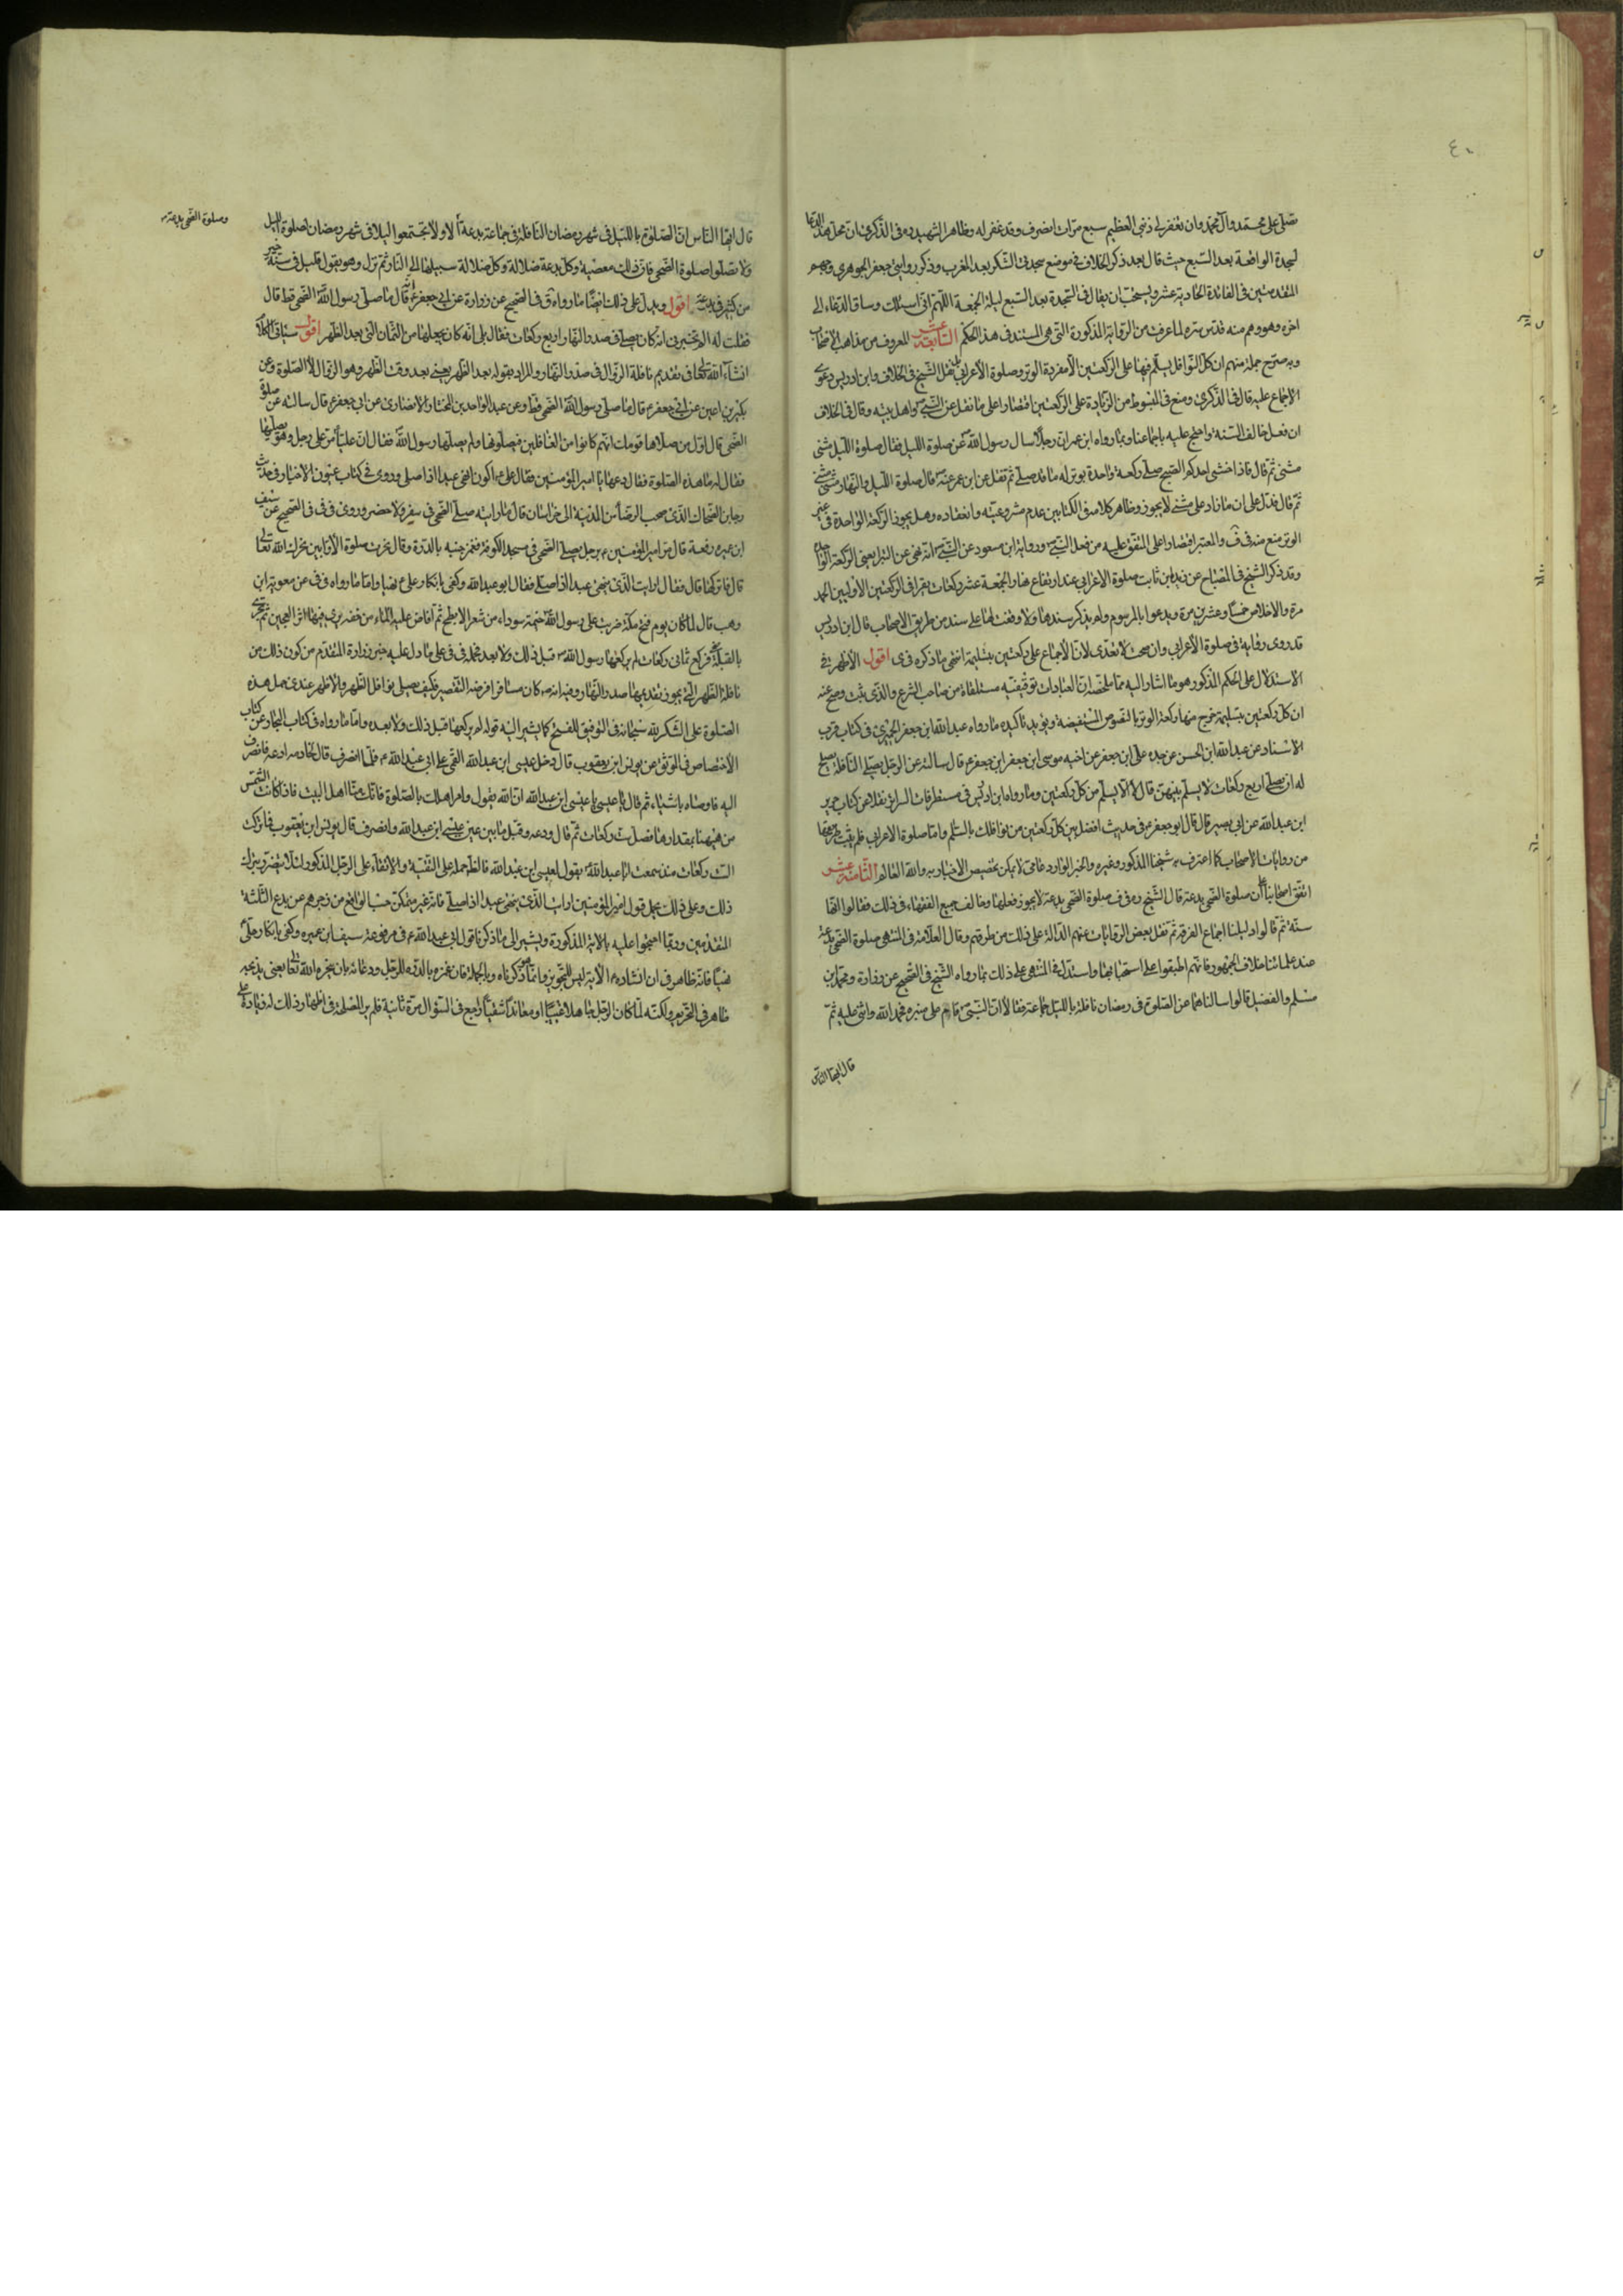 ٤٠
تصلى على محمد وآل محمد وان تغفر لى ذنبى العظيم سبع مرات انصرف وقد غفر له وظاهر الشهيد ره فى الذكرى ان محل هذا الدعا
لسجدة الواقعة بعد السبع حيث قال بعد ذكر الخلاف فى موضع سجدتى الشكر بعد المغرب وذكر روايتى جعفر الجوهرى وجهم
المقدمتين فى الفائدة الحادية عشر ويستحب ان يقال فى السجدة بعد السبع ليلة الجمعة اللهم انى اسئلك وساق الدعاء الى
اخره وهو وهم منه قدس سره لما عرفت من الرواية المذكورة التى هى المستند فى هذا الحكم السابعة عشر المعروف من مذاهب الاصحاب
وبه صرح جملة منهم ان كل النوافل يسلم فيها على الركعتين الا مفردة الوتر وصلوة الأعرابى بل نقل الشيخ فى الخلاف وابن ادريس دعوى
الاجماع عليه قال فى الذكرى ومنع فى المبسوط من الزيادة على الركعتين اقتصارا على ما نقل عن النبى ص واهل بيته وقال فى الخلاف
ان فعل خالف السنة واحتج عليه باجماعنا وبما رواه ابن عمر ان رجلا سال رسول الله ص عن صلوة الليل فقال صلوة الليل مثنى
مثنى ثم قال فاذا خشى احدكم الصبح صلى ركعة واحدة يوتر له ما قد صلى ثم نقل عن ابن عمر عنه ص قال صلوة الليل والنهار مثنى مثنى
ثم قال فدل على ان ما زاد على مثنى لا يجوز وظاهر كلامه فى الكتابين عدم مشروعيته وانعقاده وهل يجوز الركعة الواحدة فى غير
الوتر منع منه فى ف والمعتبر اقتصارا على المتفق عليه من فعل النبى ص ورواية ابن مسعود عن النبى ص انه نهى عن البترا يعنى الركعة الواحدة
وقد ذكر الشيخ فى المصباح عن زيد ابن ثابت صلوة الاعرابى عند ارتفاع نهار الجمعة عشر ركعات يقرا فى الركعتين الاوليين الحمد
مرة والاخلاص خمسا وعشرين مرة ويدعوا بالمرسوم ولم يذكر سندها ولا وقفت لها على سند من طريق الاصحاب قال ابن ادريس
قد روى رواية فى صلوة الأعرابى وان صحت لا تعدى لان الأجماع على ركعتين بتسليمة انتهى ما ذكره فى ى اقول الأظهر فى
الاستدلال على الحكم المذكور هو ما اشار اليه مما ملخصه ان العبادات توقيفيه مستلقاة من صاحب الشرع والذى ثبت وصح عنه
ان كل ركعتين بتسليمة خرج منها ركعة الوتر بالنصوص المستفيضة ويؤيد تاكيده ما رواه عبد الله ابن جعفر الحميرى فى كتاب قرب
الاسناد عن عبد الله ابن الحسن عن جده على ابن جعفر عن اخيه موسى ابن جعفر ابن جعفر ع قال سالته عن الرجل يصلى النافلة يصلح
له ان يصلى اربع ركعات لا يسلم بينهن قال لا الا يسلم من كل ركعتين وما رواه ابن ادريس فى مستطرفات السرائر نقلا من كتاب حريز
ابن عبد الله عن ابى بصير قال قال ابو جعفر ع فى حديث افصل بين كل ركعتين من نوافلك بالتسلم واما صلوة الاعرابى فلم يثبت
من روايات الأصحاب كما اعترف به شيخنا المذكور وغيره والخبر الوارد عامى لا يمكن تخصيص الاخبار به والله العالم الثامنة عشر
اتفق اصحابنا على ان صلوة الضحى بدعة قال الشيخ ره فى ف صلوة الضحى بدعة لا يجوز فعلها وخالف جميع الفقهاء فى ذلك فقالوا انها
سنة ثم قالوا دليلنا اجماع الفرقة ثم نقل بعض الروايات عنهم الدالة على ذلك من طرقهم وقال العلامة فى المنتهى صلوة الضحى بدعة
عند علمائنا خلاف الجمهور فانهم اطبقوا على استحبابها واستدل فى المنتهى على ذلك بما رواه الشيخ فى الصحيح عن زرارة ومحمد ابن
مسلم والفضيل قالوا سالناهما عن الصلوة فى رمضان نافلة بالليل جماعة فقالا ان النبى ص قام على منبره فحمد الله واثنى عليه ثم
قال ايها الناس
قال ايها الناس ان الصلوة بالليل فى شهر رمضان النافلة فى جماعة بدعة الا ولا تجتمعوا ليلا فى شهر رمضان لصلوة الليل
وصلوة الضحى بدعة
ولا تصلوا صلوة الضحى فان ذلك معصية وكل بدعة ضلالة وكل ضلالة سبيلها الى النار ثم نزل وهو يقول قليل فى سنة خير
من كثير فى بدعة اقول ويدل على ذلك ايضا ما رواه ق فى الصحيح عن زرارة عن ابى جعفر ع قال ما صلى رسول الله ص الضحى قط قال
فقلت له الم تخبرنى انه كان يصلى فى صدر النهار اربع ركعات فقال بلى انه كان يجعلها من الثمان التى بعد الظهر اقول سياتى الكلام
انشاء الله تعالى فى تقديم نافلة الزوال فى صدر النهار والمراد بقوله بعد الظهر يعنى بعد وقت الظهر وهو الزوال لا الصلوة وعن
بكير بن اعين عن ابى جعفر ع قال ما صلى رسول الله ص الضحى قط وعن عبد الواحد بن المختار الانصارى عن ابى جعفر ع قال سالته عن صلوة
الضحى قال اول من صلاها قومك انهم كانوا من الغافلين فيصلونها ولم يصلها رسول الله ص فقال ان عليا ع مر على رجل وهو يصليها
فقال له ما هذه الصلوة فقال ادعها يا امير المؤمنين فقال على ع اكون انهى عبدا اذا صلى وروى فى كتاب عيون الاخبار فى حديث
رجا بن الضحاك الذى صحب الرضا ع من المدينة الى خراسان قال ما رايته صلى الضحى فى سفر ولا حضر وروى فى فى فى الصحيح عن سيف
ابن عميره رفعه قال مر امير المؤمنين ع برجل يصلى الضحى فى مسجد الكوفة فغمز جنبه بالدرة وقال نحرت صلوة الأوابين نحرك الله تعالى
قال فاتركها قال فقال ارايت الذى ينهى عبدا اذا صلى فقال ابو عبد الله وكفى بانكار على ع نهيا واما ما رواه فى فى عن معوية ابن
وهب قال لما كان يوم فتح مكة ضربت على رسول الله ص خيمة سوداء من شعر بالابطح ثم افاض عليه الماء من جفنه يرى فيها اثر العجين ثم تحرى
القبلة ضحى فركع ثمانى ركعات لم يركعها رسول الله ص قبل ذلك ولا بعد
نافلة الظهر التى يجوز تقديمها صدر النهار وفيه انه ص كان مسافرا فرضه التقصير فكيف يصلى نوافل الظهر والاظهر عندى حمل هذه
الصلوة على الشكر لله سبحانه فى التوفيق للفتح كما يشير اليه قوله لم يركعها قبل ذلك ولا بعد واما ما رواه فى كتاب البحار عن كتاب
الأختصاص فى الموثق عن يونس ابن يعقوب قال دخل عيسى ابن عبد الله القمى على ابى عبد الله ع فلما انصرف قال لخادمه ادعه فانصرف
اليه فاوصاه باشياء ثم قال يا عيسى يا عيسى ابن عبد الله ان الله يقول وامر اهلك بالصلوة فانك منا اهل البيت فاذا كانت الشمس
من هيهنا بمقدارها فصل ست ركعات ثم قال ودعه وقبل ما بين عينى عيسى ابن عبد الله وانصرف قال يونس ابن يعقوب فما تركت
الست ركعات منذ سمعت ابا عبد الله ع يقول لعيسى ابن عبد الله فالظ حمله على التقية والاتقاء على الرجل المذكور لئلا يتضرر بترك
ذلك وعلى ذلك يحمل قول امير المؤمنين ارايت الذى ينهى عبدا اذا صلى فانه غير متمكن حسب الواقع من زجرهم عن بدع الثلثة
المتقدمين وربما احتجوا عليه بالاية المذكورة ويشير الى ما ذكرنا قول ابى عبد الله ع فى مرفوعة سيف ابن عميره وكفى بانكار على ع
نهيا فانه ظاهر فى ان انشاده ع الاية ليس للتجويز وانما هو لما ذكرناه وبالجملة فان غمزه بالدره للرجل ودعائه بان ينحره الله تعالى يعنى يذبحه
ظاهر فى التحريم ولكنه لما كان الرجل جاهلا غبيا او معاندا شقيا راجع فى السؤال مرة ثانية فلم ير المصلحة فى اظهار ذلك له زيادة على